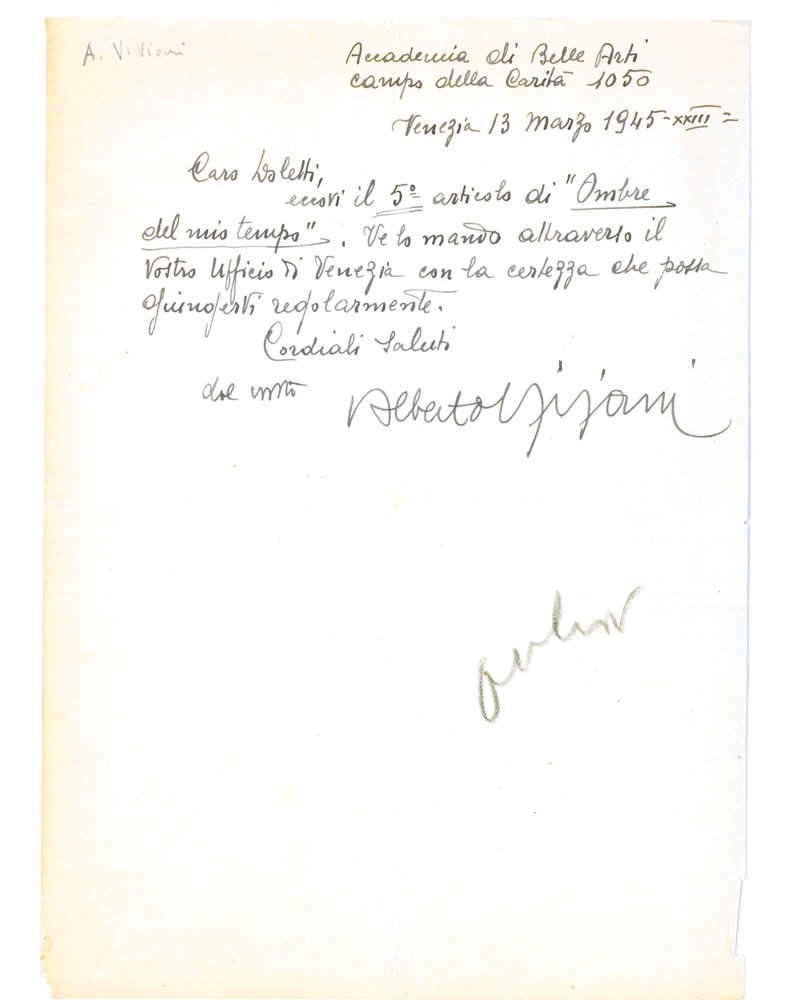 A. Visiani
Accademia di Belle Arti
campo della Carità 1050
Venezia 13 Marzo 1945-XXIII=
Caro Doletti,
eccovi il 5º articolo di "Ombre
del mio tempo". Ve lo mando attraverso il
Vostro Ufficio di Venezia con la certezza che possa
giungervi regolarmente.
Cordiali saluti
dal vostro
Alberto